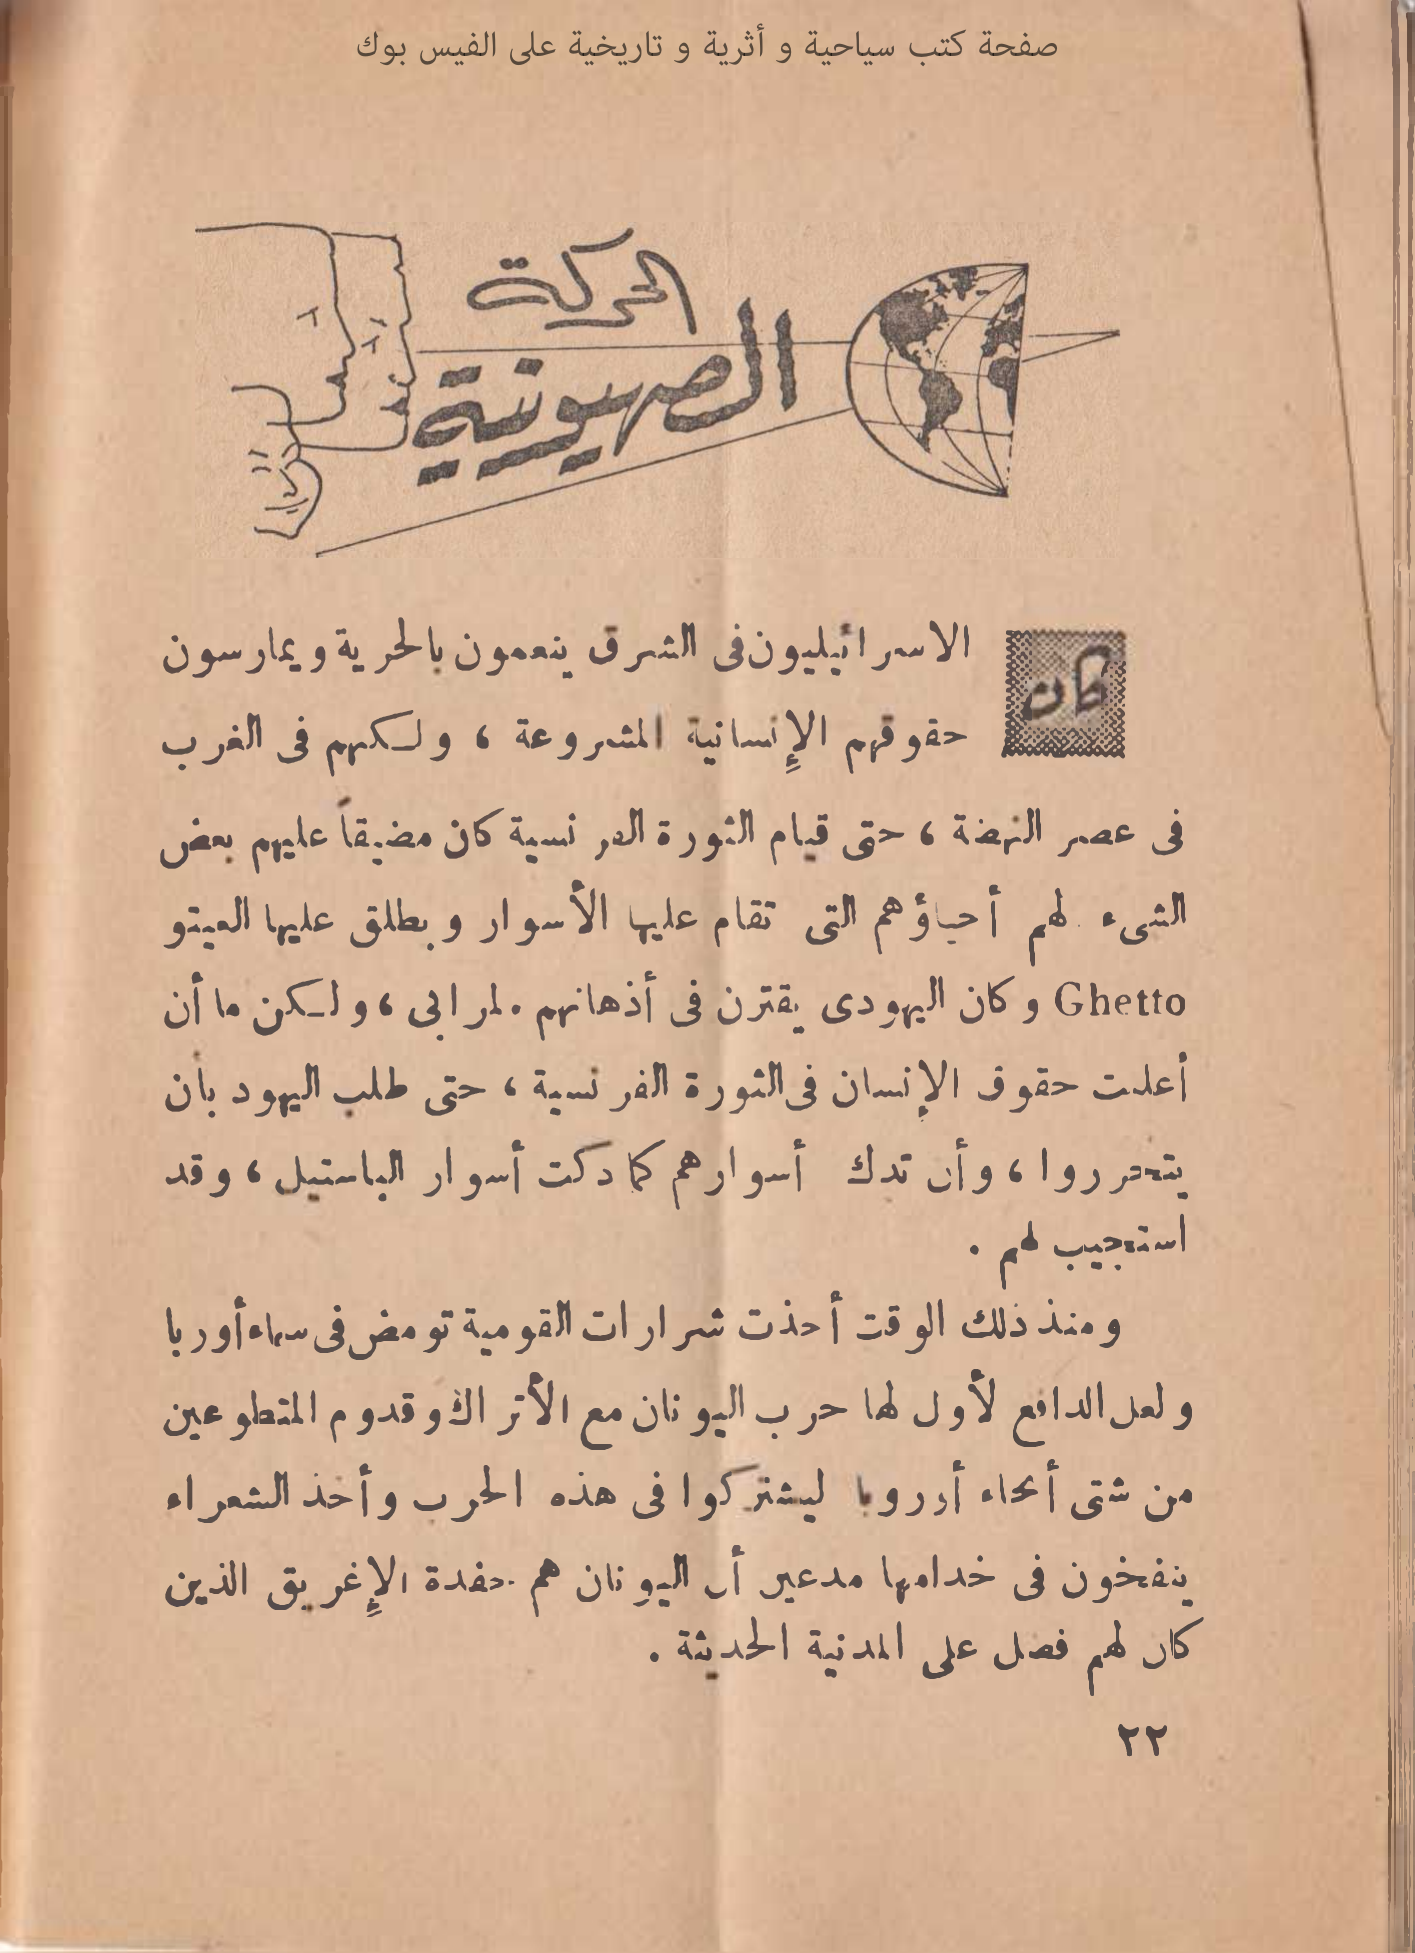 صفحة كتب سياحية و أثرية و تاريخية على الفيس بوك
الحركة
الصهيونية
كان
الاسرائيليون فى الشرق ينعمون بالحرية ويمارسون
حقوقهم الإنسانية المشروعة ، ولكنهم فى الغرب
فى عصر النهضة ، حتى قيام الثورة الفرنسية كان مضيقاً عليهم بعض
الشىء لهم أحياؤهم التى تقام عليها الأسوار ويطلق عليها الغيتو
Ghetto وكان اليهودى يقترن فى أذهانهم بالمرابى ، ولكن ما أن
أعلنت حقوق الإنسان فى الثورة الفرنسية ، حتى طلب اليهود بأن
يتحرروا ، وأن تدك أسوارهم كما دكت أسوار الباستيل ، وقد
استجيب لهم .
ومنذ ذلك الوقت أخذت شرارات القومية تومض فى سماء أوربا
ولعل الدافع لأول لها حرب اليونان مع الأتراك وقدوم المتطوعين
من شتى أنحاء أوروبا ليشتركوا فى هذه الحرب وأخذ الشعراء
ينفخون فى ضرامها مدعين أن اليونان هم حفدة الإغريق الذين
كان لهم فضل على المدنية الحديثة .
٢٢